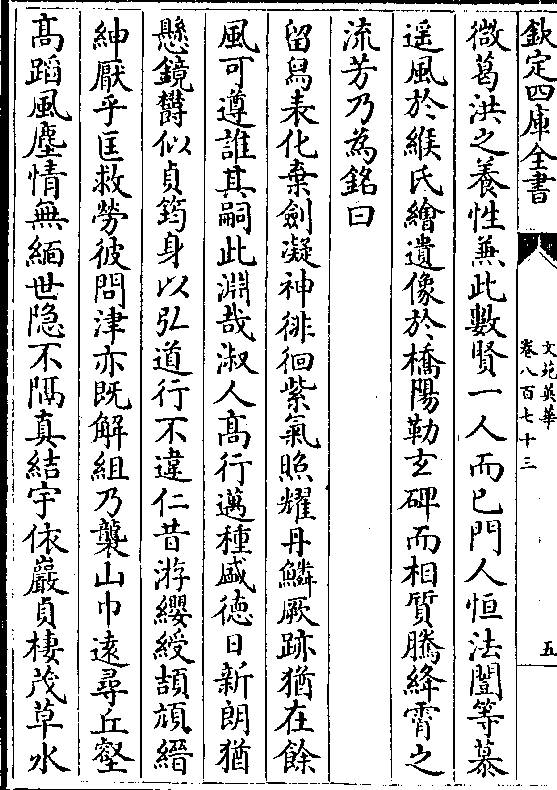 欽定四庫全書
文苑英華
卷八百七十三
五
微葛洪之養性兼此數賢一人而已門人恒法闓等慕
遥風於緱氏繪遺像於橋陽勒玄碑而相質騰絳霄之
流芳乃為銘曰
留舄表化棄劍凝神徘徊紫氣照耀丹鱗厥跡猶在餘
風可遵誰其嗣此淵哉淑人髙行邁種盛徳日新朗猶
懸鏡欝似貞筠身以弘道行不違仁昔游纓綬頡頏縉
紳厭乎匡救勞彼問津亦既解組乃襲山巾遠尋丘壑
髙蹈風塵情無緬世隐不隅真結宇依巖貞棲茂草水